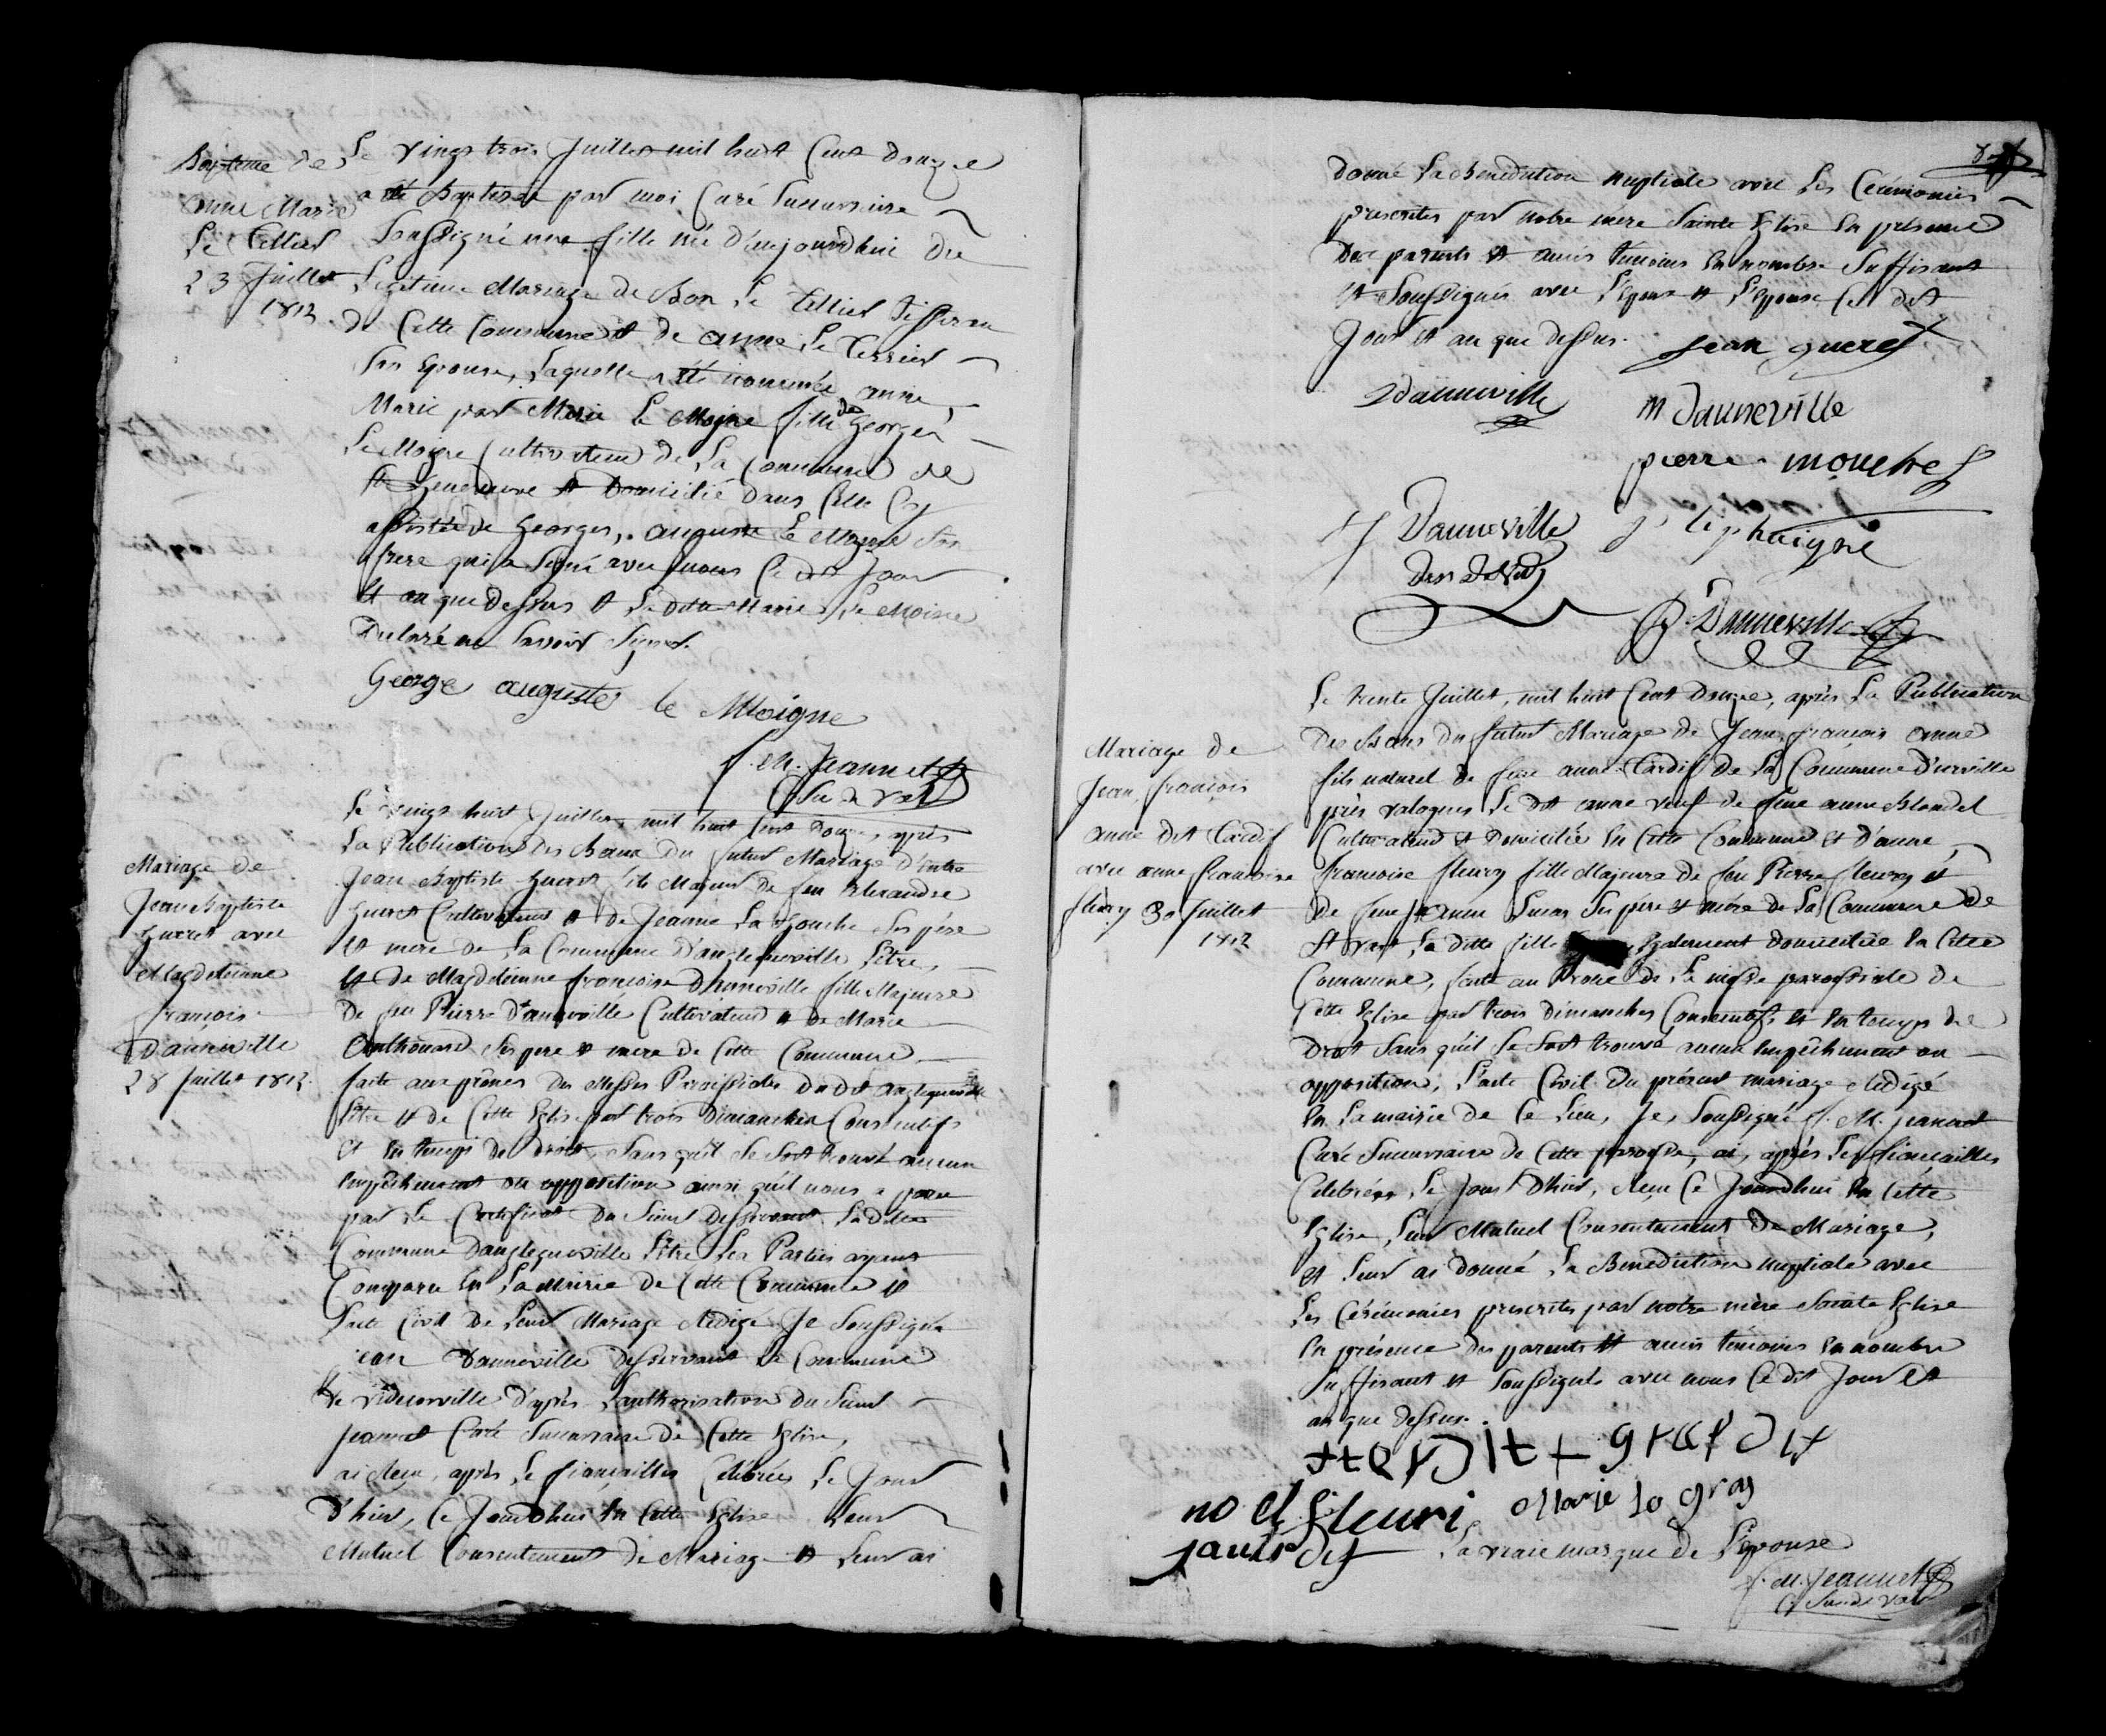 Baptême de
anne Marie
le Tellier
23 Juillet
1812.
Le vingt trois Juillet mil huit Cent douze
a été baptisée par moi Curé Succursaire
Soussigné une fille née d'aujourdhui du
Legitime Mariage de Bon Le Tellier Tisseran
de Cette Commune et de anne Le Terrier
son Epouse, Laquelle a été nommée anne
Marie par Marie le Moyne fille de Georges
Le Moyne Cultivateur de La Commune de
ste Geneviève et Domicilié dans Celle Cy
assistée de Georges, auguste Le Moyne son
frere qui a Signé avec nous Ce dit Jour
et an que dessus et La ditte Marie Le Moine
Declaré ne Savoir Signer.
George auguste le Moigne
f. M. Jeannet
C. Suc de Vast
Mariage de
Jean Baptiste
Gueret avec
Magdeleinne
françoise
Danneville
28 Juillet 1812.
Le vingt huit Juillet, mil huit Cent douze, après
La Publication des Bans du futur Mariage d'entre
Jean Baptiste Gueret fils Majeur de feu Alexandre
Gueret Cultivateur et de Jeanne La houche Ses père
et mere de La Commune d'anglequeville Lêtre,
et de Magdeleinne françoise Danneville fille Majeure
de feu Pierre Danneville Cultivateur et de Marie
Anthouard Ses pere et mere de Cette Commune
faite aux prônes des Messes Paroissiales du dit anglequeville
Lêtre et de Cette Eglise par trois Dimanches Consecutifs
et en temps de droit, Sans qu'il se soit trouvé aucun
Empêchement ou opposition ainsi qu'il nous a paru
par Le Certificat du Sieur Desservant La ditte
Commune Danglequeville Lêtre Les Parties ayant
Comparu en La Mairie de Cette Commune et
l'acte Civil de Leur Mariage Redigé Je Soussigné
jean Danneville Desservant la Commune
de Videcosville D'après L'authorisation du Sieur
Jeannet Curé Succursaire de Cette Eglise,
ai Reçu, après Le fiançailles Celebrées Le Jour
d'hier, Ce Jourdhui En Cette Eglise Leur
Mutuel Consentement de Mariage et Leur ai
donné La Benediction nuptiale avec Les Cérémonies
prescrites par notre mère Sainte Eglise En présence
Des parents et amis témoins En nombre Suffisant
et Soussignés avec L'epoux et L'epouse Ce dit
Jour et an que dessus. jean gueret
Danneville m Danneville
pierre mouchel
Danneville
Danneville
Mariage de
Jean, françois
anne dit Tardif
avec anne françoise
fleury 30 Juillet
1812
Le trente Juillet, mil huit Cent Douze, après La Publication
des Bans du futur Mariage de Jean, françois anne
fils naturel de feue anne Tardif de La Commune D'urville
près valognes Le dit anne veuf de feue anne Blondel
Cultivateur et Domicilié En Cette Commune et d'anne
françoise fleury fille Majeure de feu Pierre fleury et
de feue Lucas Ses père et mère de La Commune de
St vast, La ditte fille Egalement domiciliée En Cette
Commune, faite au Prone de La messe paroissiale de
Cette Eglise par trois dimanches Consecutifs et En temps de
droit Sans qu'il Se soit trouvé aucun Empêchement ou
opposition, L'acte Civil du présent mariage Redigé
En La mairie de Ce Lieu, Je, Soussigné f. M. Jeannet
Curé Succursaire de Cette paroisse, ai, après Les fiancailles
Celebrées Le Jour D'hier, Reçu Ce Jourdhui En Cette
Eglise, Leur Mutuel Consentement de Mariage,
et Leur ai donné La Benediction nuptiale avec
Les Cérémonies prescrites par notre mère Sainte Eglise
En présence des parents et amis témoins En nombre
Suffisant et Soussignés avec nous Ce dit Jour et
an que dessus.
no el fleuri Marie le gros
La vraie marque de L'epouse
f. M. Jeannet
C. Suc de Vast